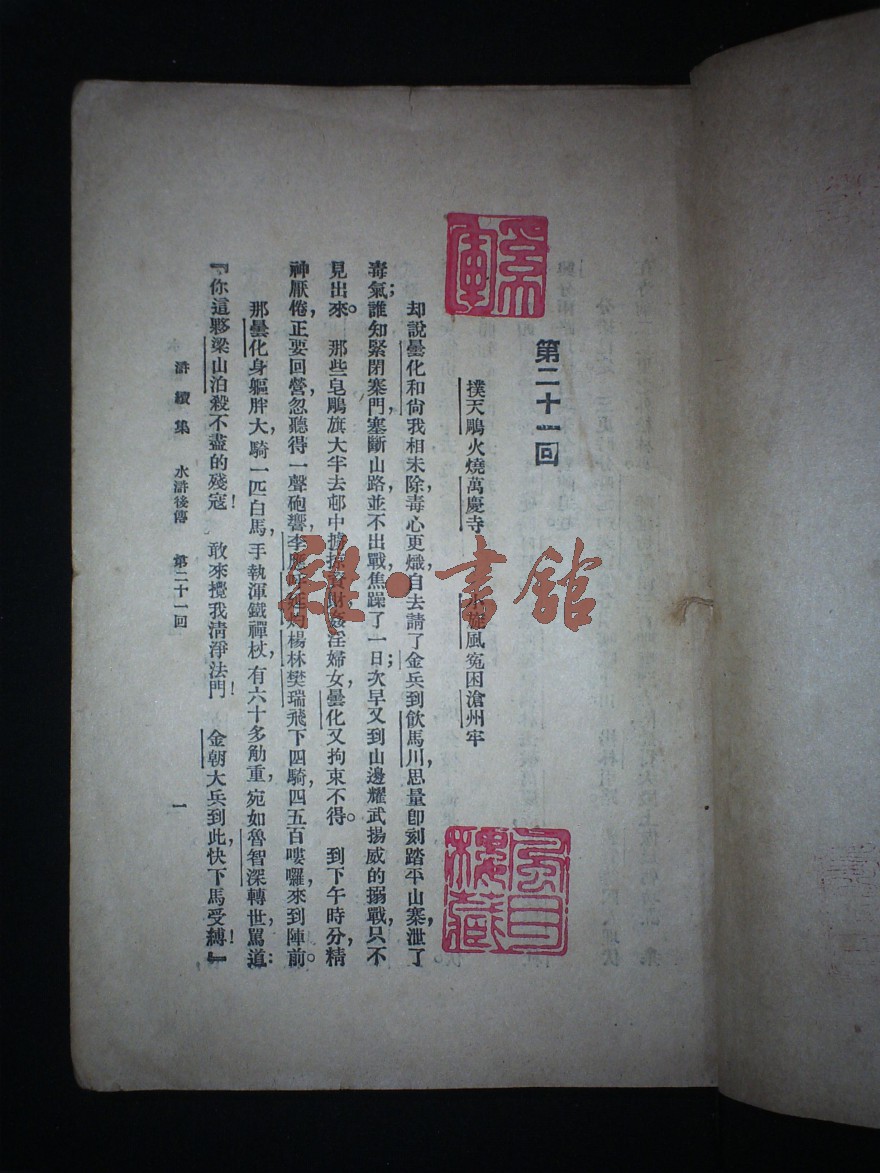 第二十一回
撲天鵰火燒萬慶寺 小旋風寃困滄州牢
却說曇化和尙我相未除，毒心更熾，自去請了金兵到飮馬川，思量卽刻踏平山寨，泄了
毒氣；誰知緊閉寨門，塞斷山路，並不出戰，焦躁了一日；次早又到山邊耀武揚威的搦戰，只不
見出來。那些皂鵰旗大半去邨中擄掠資財，姦淫婦女，曇化又拘束不得。到下午時分，精
神厭倦，正要回營，忽聽得一聲砲響，李應呼延灼楊林樊瑞飛下四騎，四五百嘍囉，來到陣前。
那曇化身軀胖大，騎一匹白馬，手執渾鐵禪杖，有六十多觔重，宛如魯智深轉世，罵道：
『你這夥梁山泊殺不盡的殘寇！敢來攪我淸淨法門！金朝大兵到此，快下馬受縛！』
滸續集 水滸後傳 第二十一回 一
雜·書館